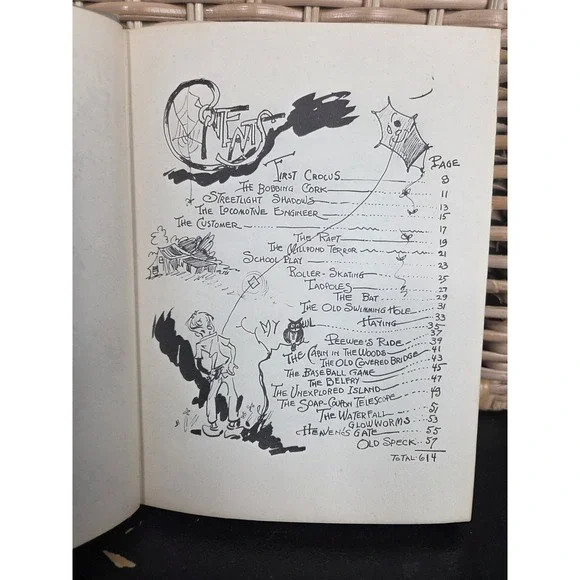 CONTENTS
PAGE
FIRST CROCUS 9
THE BOBBING CORK 11
STREETLIGHT SHADOWS 13
THE LOCOMOTIVE ENGINEER 15
THE CUSTOMER 17
THE RAFT 19
THE MILLPOND TERROR 21
SCHOOL PLAY 23
ROLLER-SKATING 25
TADPOLES 27
THE BAT 29
THE OLD SWIMMING HOLE 31
MY OWL 33
HAYING 35
PEEWEE'S RIDE 37
THE CABIN IN THE WOODS 39
THE OLD COVERED BRIDGE 41
THE BASEBALL GAME 43
THE BELFRY 45
THE UNEXPLORED ISLAND 47
THE SOAP-COUPON TELESCOPE 49
THE WATERFALL 51
GLOWWORMS 53
HEAVEN'S GATE 55
OLD SPECK 57
TOTAL 614